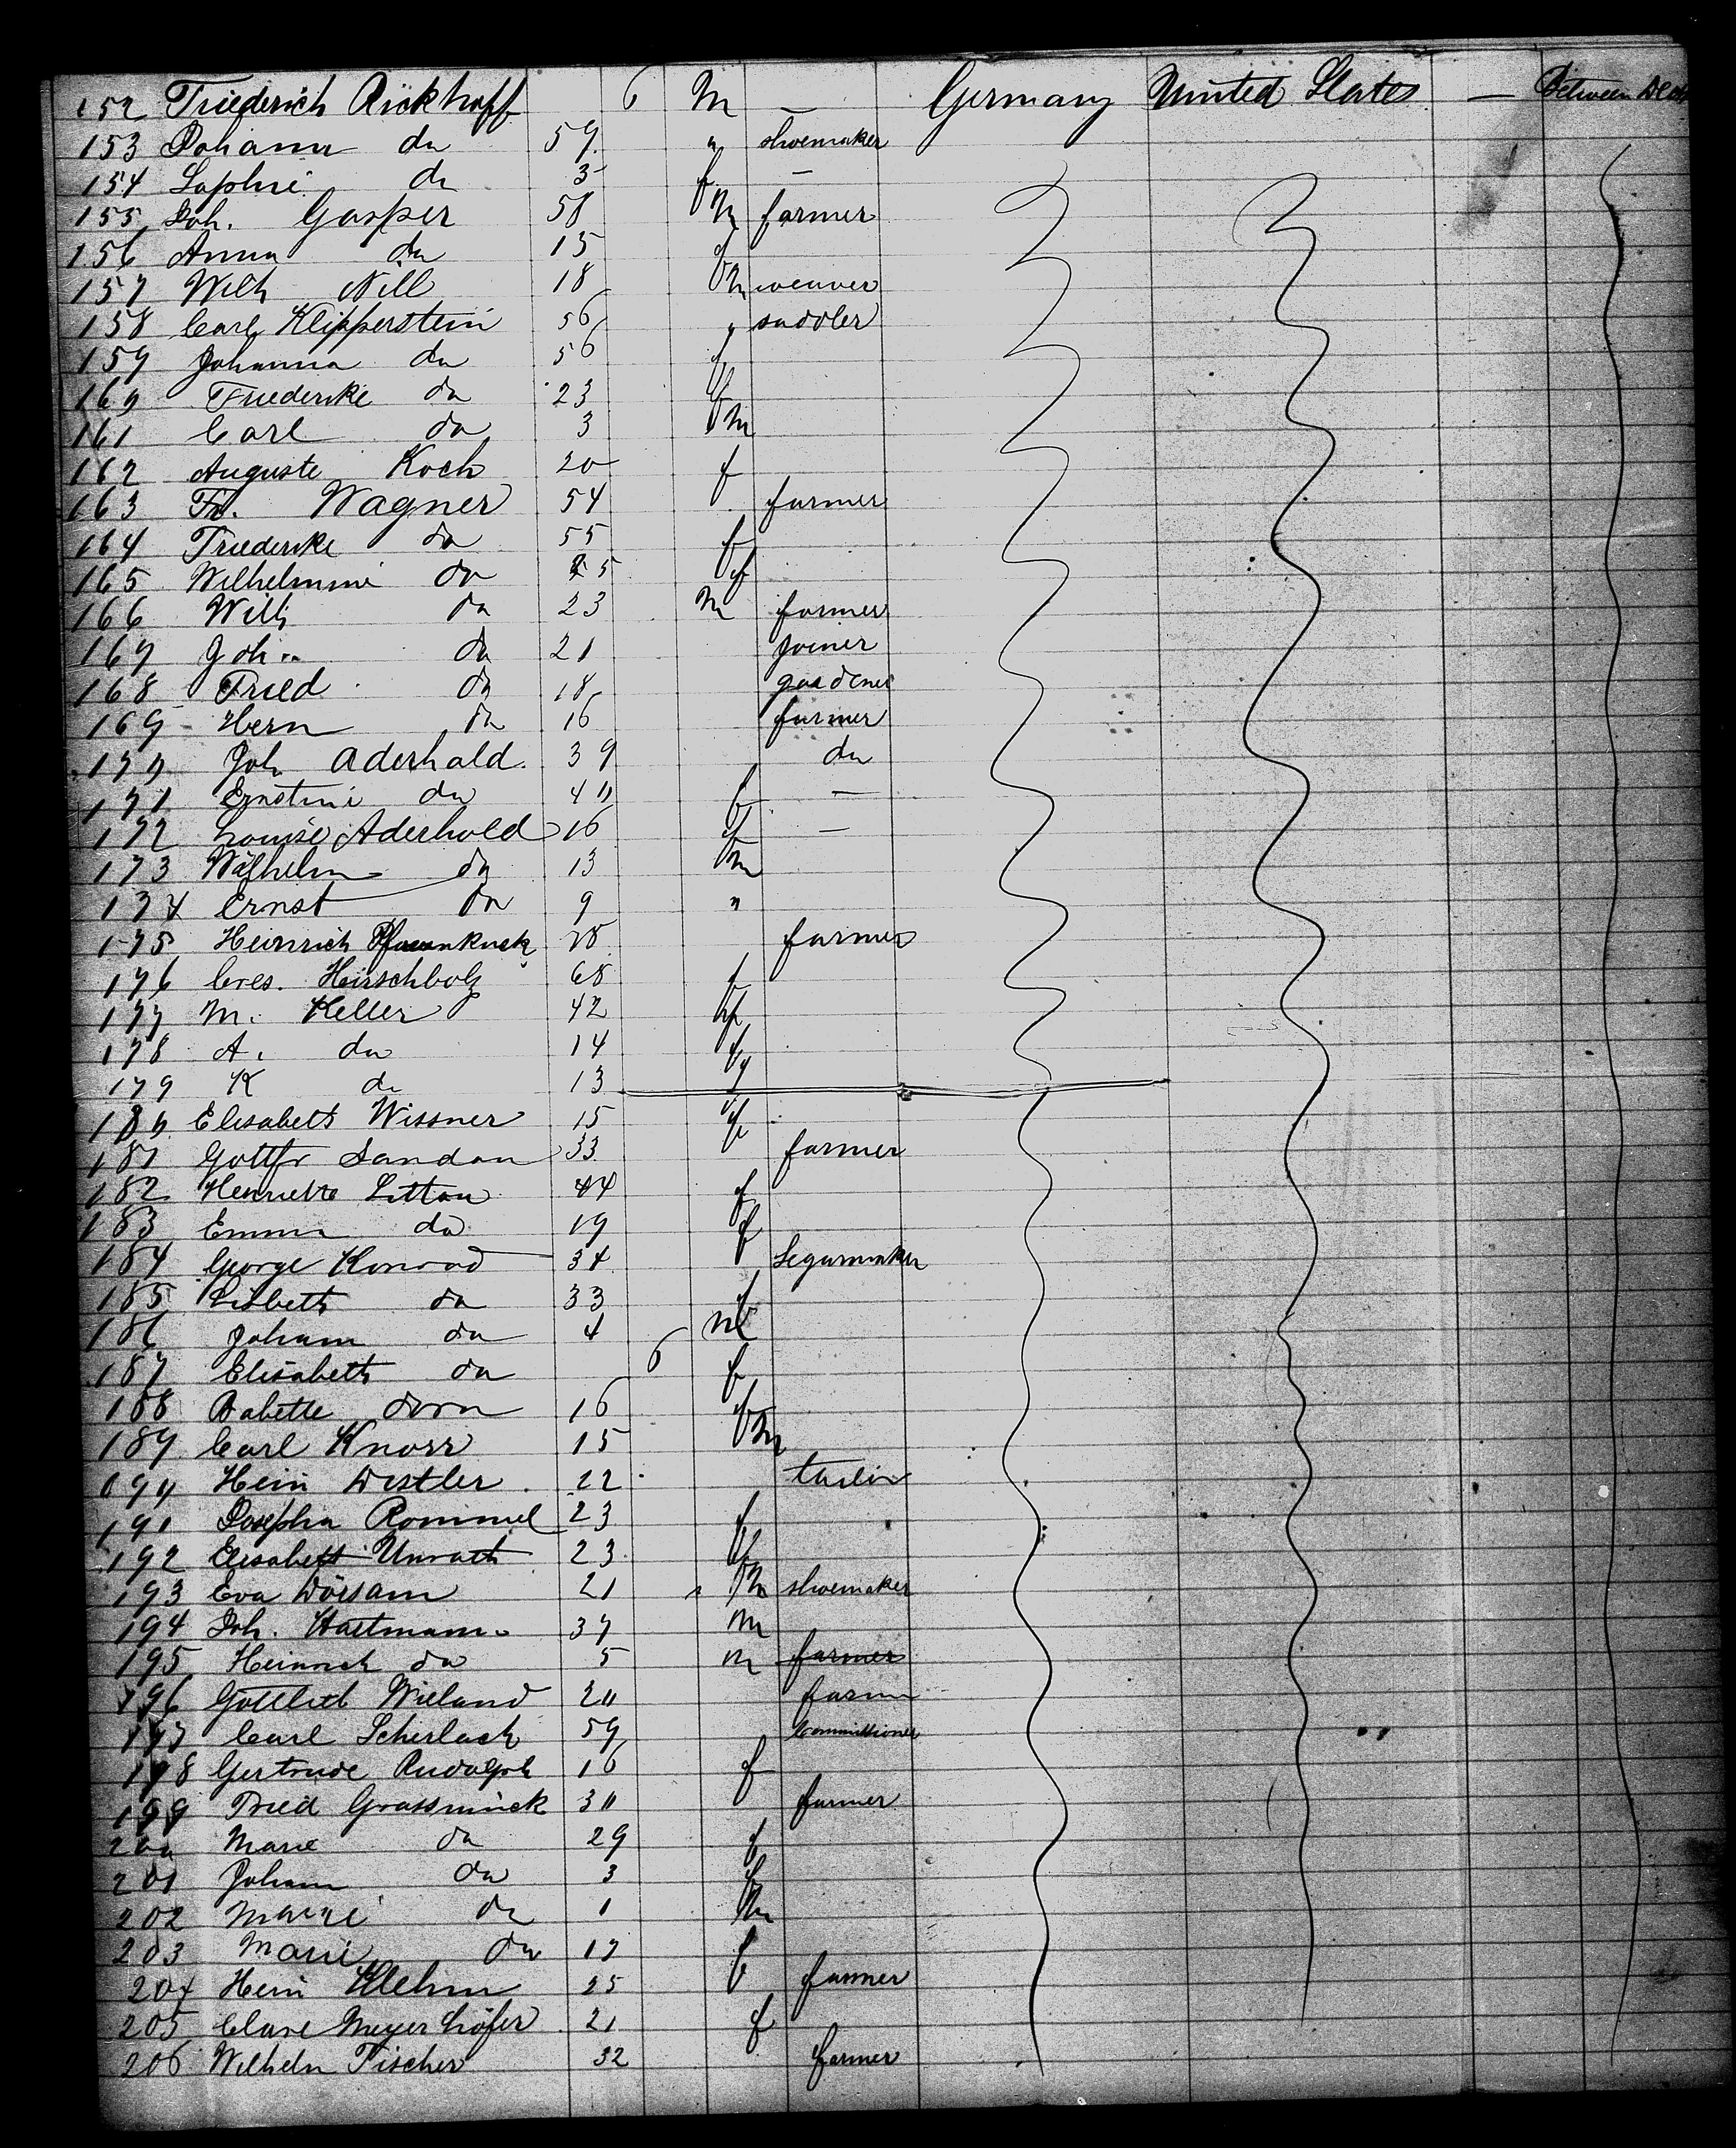 152 Friederich Rickhoff 6 M — Germany United States — Between Deck
153 Johann do 59 " shoemaker
154 Sophie do 3 f —
155 Joh. Gasper 58 M farmer
156 Anna do 15 f
157 Wilh Nill 18 M weaver
158 Carl Klipperstein 56 " saddler
159 Johanna do 56 f
160 Friederike do 23 f
161 Carl do 3 M
162 Auguste Koch 20 f
163 Fr. Wagner 54 farmer
164 Friederike do 55 f
165 Wilhelmine do 5 f
166 Wilh do 23 M farmer
167 Joh. do 21 Joiner
168 Fried do 18 gardener
169 Herm do 16 farmer
170 Joh Aderhald 39 do
171 Ernstine do 40 f —
172 Louise Aderhold 16 f —
173 Wilhelm do 13 M
174 Ernst do 9 "
175 Heinrich 28 farmer
176 Cres. Hirschbolz 68 f
177 M. Keller 42 f
178 A. do 14 f
179 K do 13
180 Elisabeth Wissner 15 f
181 Gottfr Sandau 33 farmer
182 Henriette Littau 44 f
183 Emma do 19 f
184 George Konrad 34 Segarmaker
185 Lisbeth do 33 f
186 Johann do 4 M
187 Elisabeth do 6 f
188 Babette Dorn 16 f
189 Carl Knorr 15 M
190 Hein Distler 22
191 Josepha Rommel 23 f
192 Elisabett Unrath 23 f
193 Eva Dörsam 21 M shoemaker
194 Joh. Hartmann 37 M
195 Heinrich do 5 M farmer
196 Gottlieb Wieland 20 farmer
197 Carl Scherlach 59 Commissioner
198 Gertrude Rudolph 16 f
199 Fried Grassmück 30 farmer
200 Marie do 29 f
201 Johann do 3 f
202 Marie do 1 M
203 Marie do 17 f
204 Hein Klehm 25 farmer
205 Clare Meyerhöfer 21 f
206 Wilhelm Fischer 32 farmer